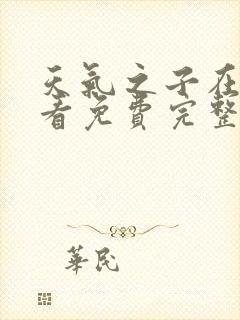 天氣之子在
看免費完整
華民